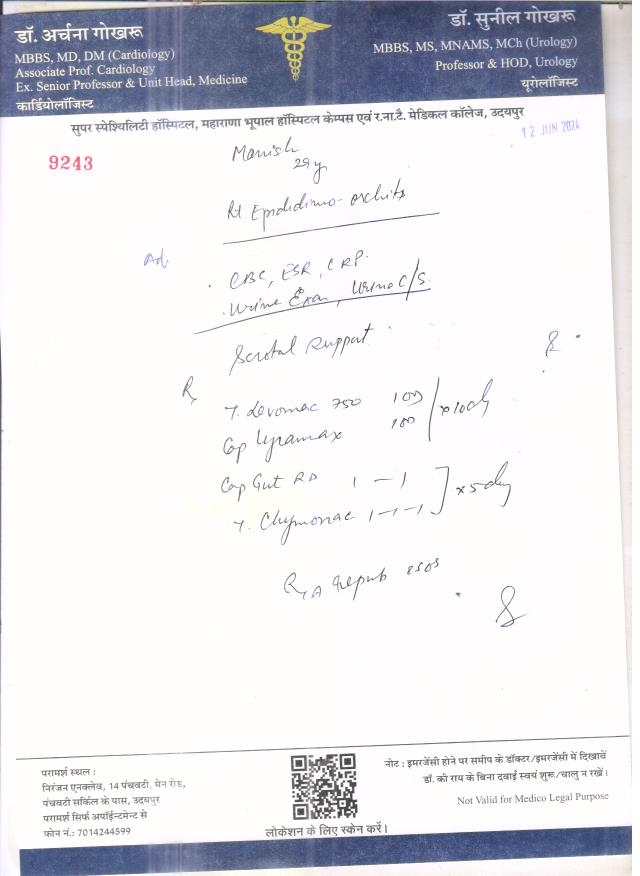 डॉ. अर्चना गोखरू
MBBS, MD, DM (Cardiology)
Associate Prof. Cardiology
Ex. Senior Professor & Unit Head, Medicine
कार्डियोलॉजिस्ट
डॉ. सुनील गोखरू
MBBS, MS, MNAMS, MCh (Urology)
Professor & HOD, Urology
यूरोलॉजिस्ट
सुपर स्पेश्यिलिटी हॉस्पिटल, महाराणा भूपाल हॉस्पिटल केम्पस एवं र.ना.टै. मेडिकल कॉलेज, उदयपुर
12 JUN 2024
9243
Manish
29y
Rt Epididimo-orchitis
Ad.
CBC, ESR, CRP.
Urine Exam, Urine C/S.
Scrotal Support
Rx
T. Levomac 750 1OD
Cap Lyramax 1OD x10dy
Cap Gut RD 1-1
T. Chymonac 1-1-1 x5dy
परामर्श स्थल :
निरंजन एनक्लेव, 14 पंचवटी, मेन रोड,
पंचवटी सर्किल के पास, उदयपुर
परामर्श सिर्फ अपॉईन्टमेन्ट से
फोन नं.: 7014244599
लोकेशन के लिए स्केन करें।
नोट : इमरजेंसी होने पर समीप के डॉक्टर/इमरजेंसी में दिखावें
डॉ. की राय के बिना दवाई स्वयं शुरू/चालु न रखें।
Not Valid for Medico Legal Purpose